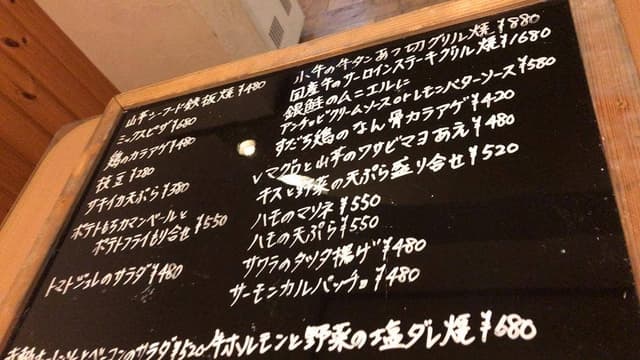 山芋シーフード鉄板焼¥480
ミックスピザ¥680
鶏のカラアゲ¥480
枝豆¥280
サキイカ天ぷら¥380
ポテトもちカマンベールと
ポテトフライもり合せ¥550
トマトジュレのサラダ¥480
ベーコンのサラダ¥520
小牛の牛タンあつ切グリル焼¥880
国産牛のサーロインステーキグリル焼¥1680
銀鮭のムニエルに
アンチョビクリームソースorレモンバターソース¥580
すだち鶏のなん骨カラアゲ¥420
マグロと山芋のワサビマヨあえ¥480
キスと野菜の天ぷら盛り合せ¥520
ハモのマリネ¥550
ハモの天ぷら¥550
サワラのタツタ揚げ¥480
サーモンカルパッチョ¥480
牛ホルモンと野菜の塩ダレ焼¥680